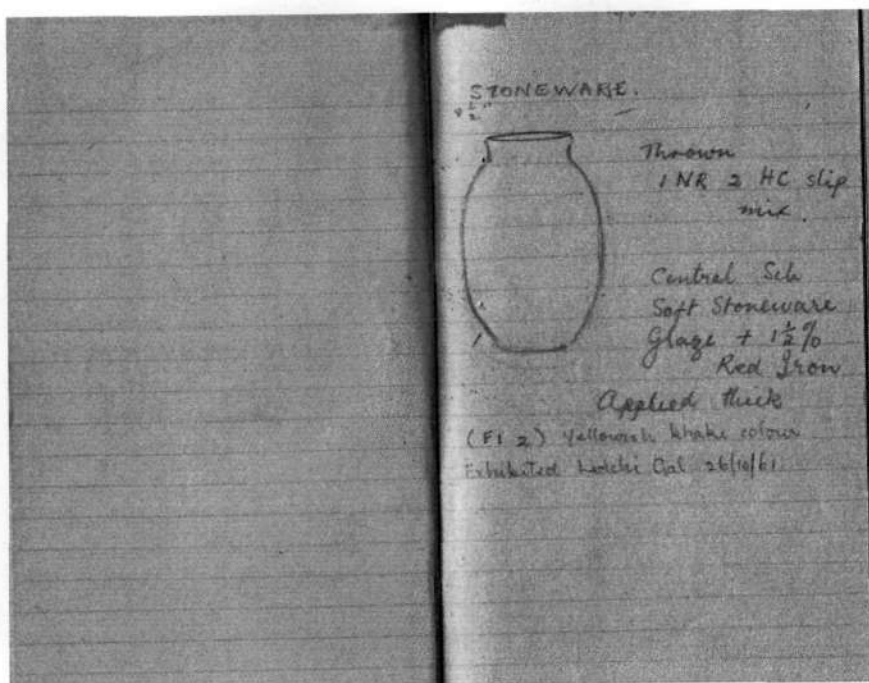 STONEWARE.
Thrown
1 NR 2 HC slip
mix.
Central Sch
Soft Stoneware
Glaze + 1½%
Red Iron
Applied thick
(F1 2) Yellowish khaki colour
Exhibited Gal 26/10/61